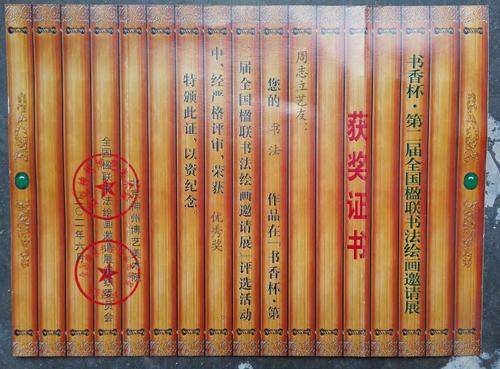 书香杯·第二届全国楹联书法绘画邀请展
获奖证书
周志立艺友：
您的 书法 作品在「书香杯·第
二届全国楹联书法绘画邀请展」评选活动
中，经严格评审，荣获 优秀奖
特颁此证，以资纪念
神州博艺
全国楹联书法绘画邀请展组委会
二〇一一年六月